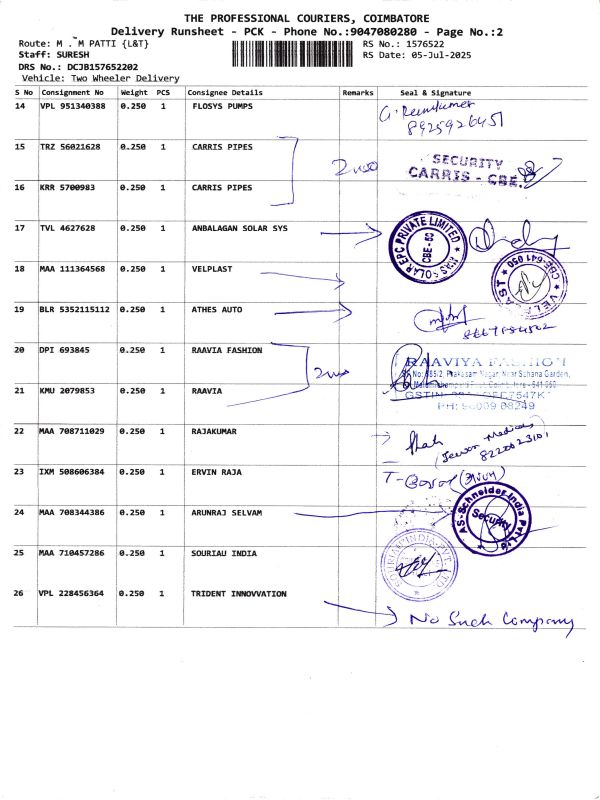 THE PROFESSIONAL COURIERS, COIMBATORE
Delivery Runsheet - PCK - Phone No.:9047080280 - Page No.:2
Route: M . M PATTI {L&T}
RS No.: 1576522
Staff: SURESH
RS Date: 05-Jul-2025
DRS No.: DCJB157652202
Vehicle: Two Wheeler Delivery
S No Consignment No Weight PCS Consignee Details Remarks Seal & Signature
14 VPL 951340388 0.250 1 FLOSYS PUMPS
8925926451
15 TRZ 56021628 0.250 1 CARRIS PIPES
SECURITY
CARRIS - CBE.
16 KRR 5700983 0.250 1 CARRIS PIPES
17 TVL 4627628 0.250 1 ANBALAGAN SOLAR SYS
SOLAR EPC PRIVATE LIMITED
18 MAA 111364568 0.250 1 VELPLAST
VELPLAST CBE-641 050
19 BLR 5352115112 0.250 1 ATHES AUTO
20 DPI 693845 0.250 1 RAAVIA FASHION
RAAVIYA FASHION
21 KMU 2079853 0.250 1 RAAVIA
PH: 98009 08249
22 MAA 708711029 0.250 1 RAJAKUMAR
8220023101
23 IXM 508606384 0.250 1 ERVIN RAJA
24 MAA 708344386 0.250 1 ARUNRAJ SELVAM
AS-Schneider India Pvt Ltd
Security
25 MAA 710457286 0.250 1 SOURIAU INDIA
26 VPL 228456364 0.250 1 TRIDENT INNOVVATION
No Such Company